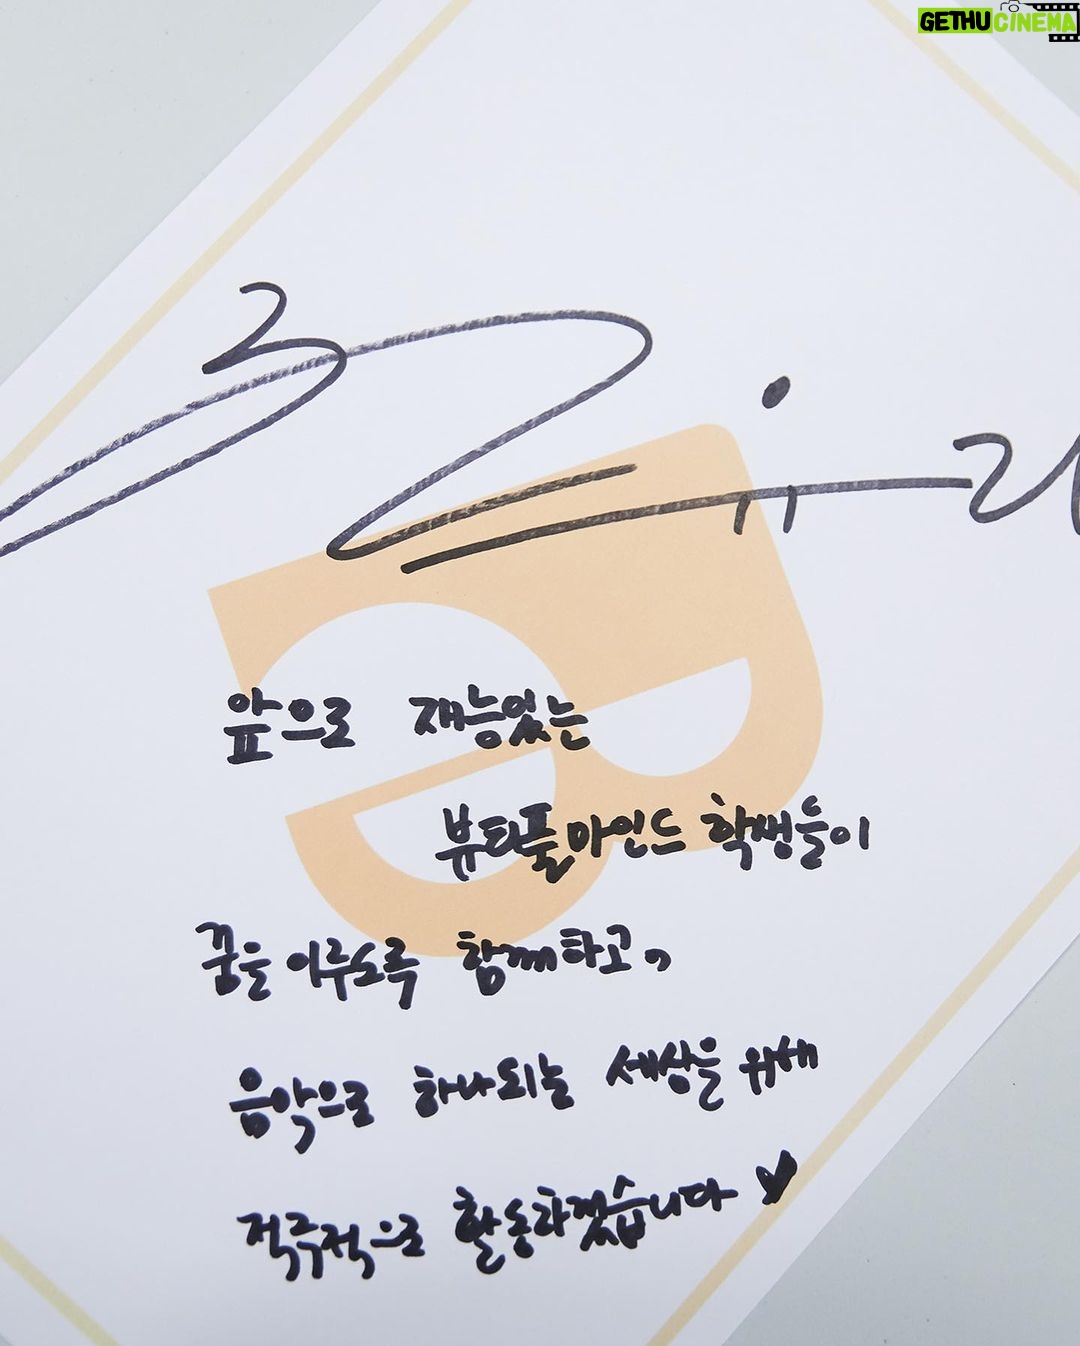 GETHUCINEMA
앞으로 재능있는
뷰티풀마인드 학생들이
꿈을 이루도록 함께하고,
음악으로 하나되는 세상을 위해
적극적으로 활동하겠습니다